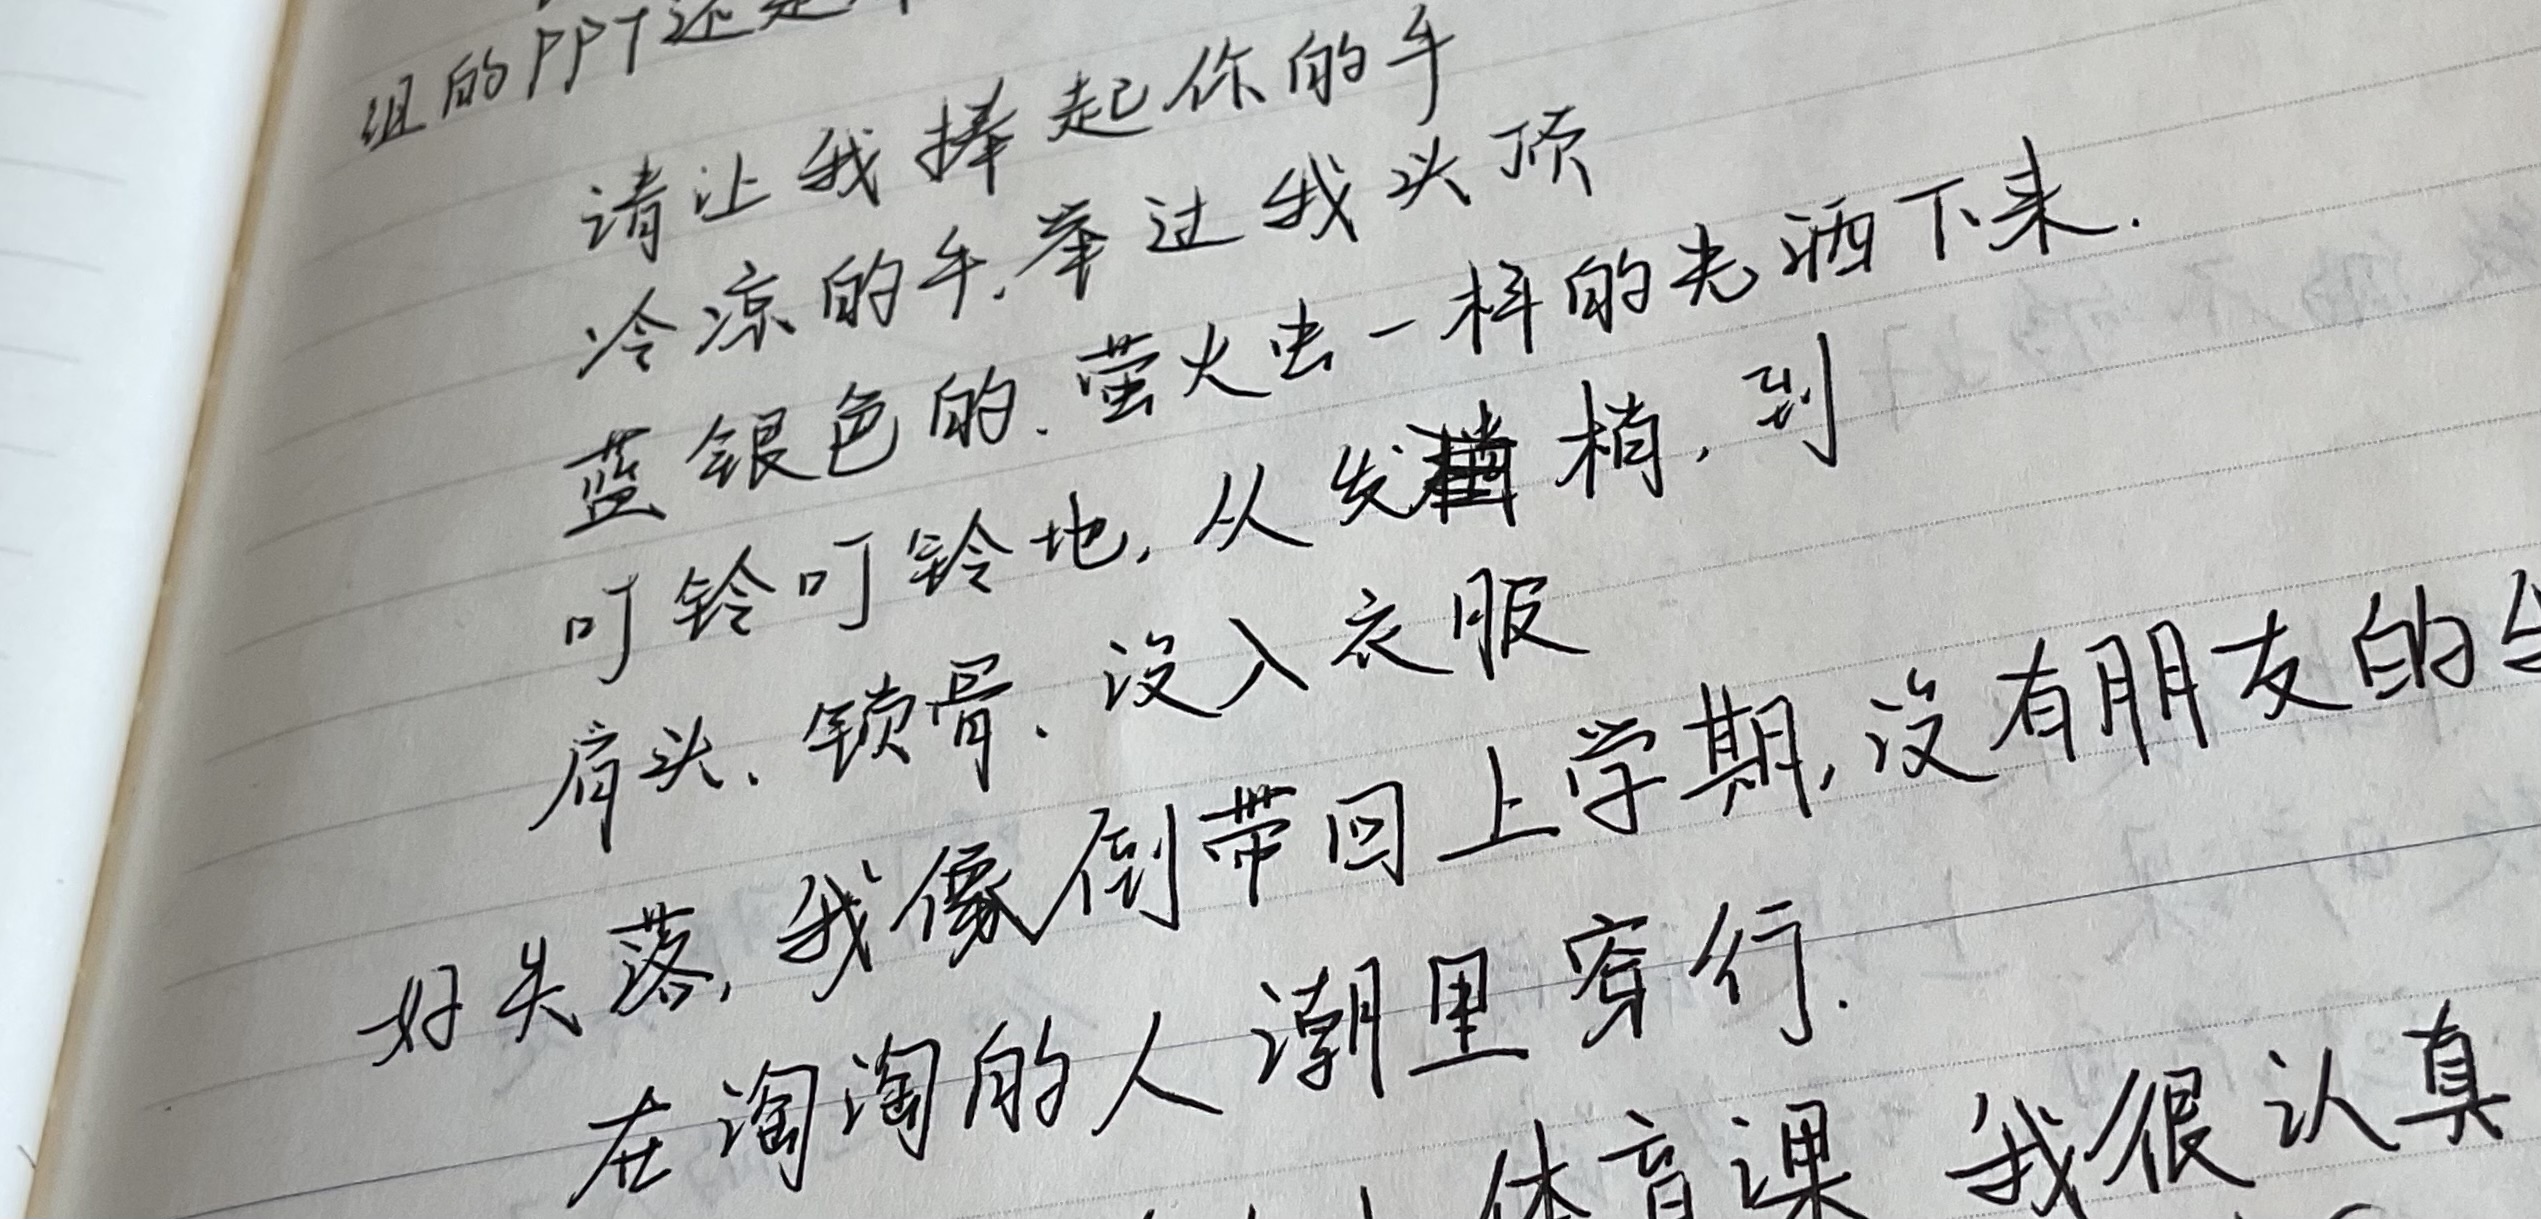 组的PPT还是
请让我捧起你的手
冷凉的手,举过我头顶
蓝银色的、萤火虫一样的光洒下来.
叮铃叮铃地,从发梢,到
肩头、锁骨、没入衣服
好失落,我像倒带回上学期,没有朋友的
在淘淘的人潮里穿行.
体育课 我很认真